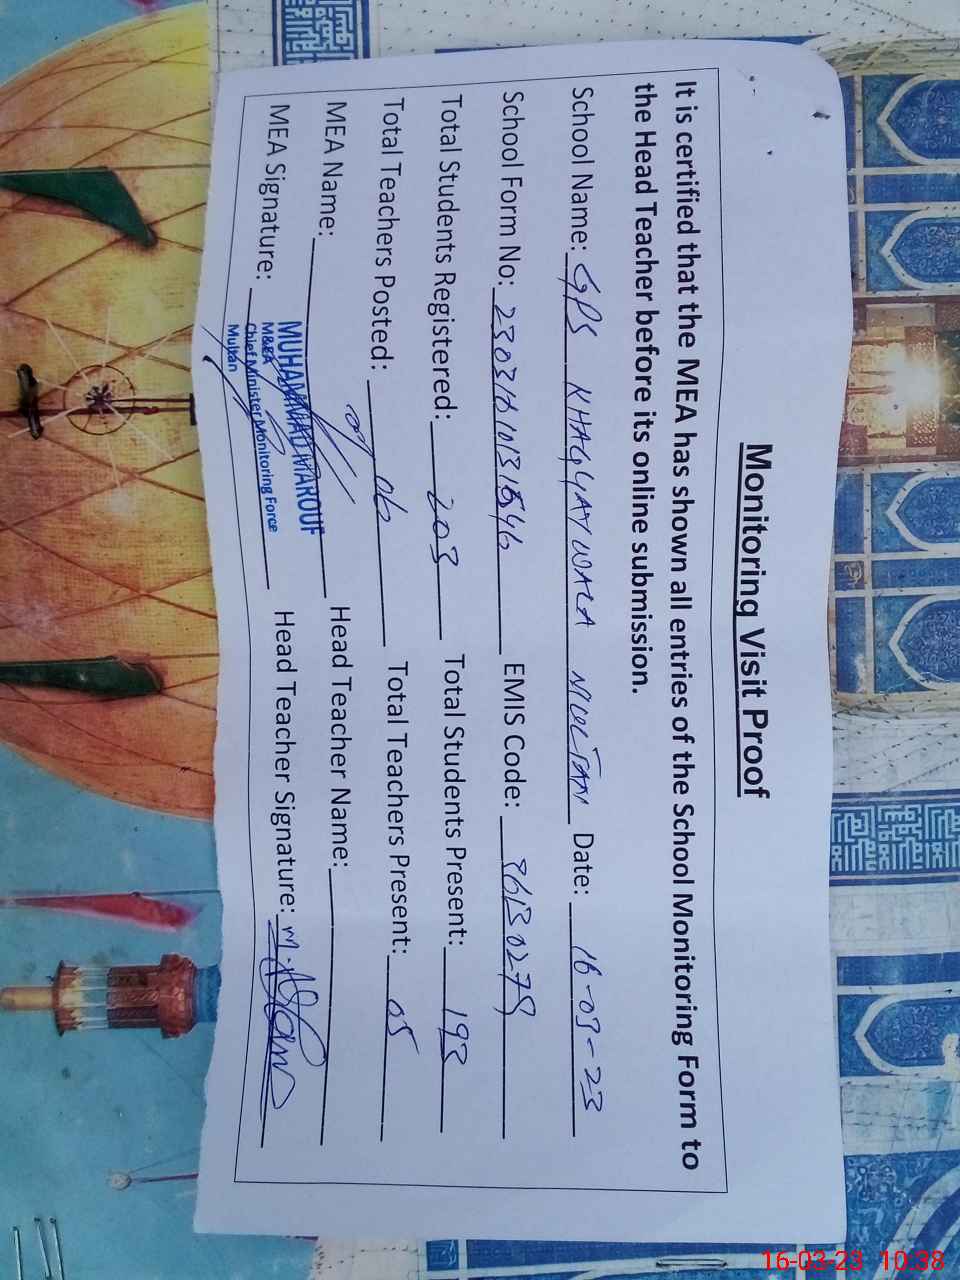 Monitoring Visit Proof
It is certified that the MEA has shown all entries of the School Monitoring Form to
the Head Teacher before its online submission.
School Name: GPS KHAGGAY WALA MULTAN Date: 16-03-23
School Form No: EMIS Code:
Total Students Registered: 203 Total Students Present: 193
Total Teachers Posted: 06 Total Teachers Present: 05
MEA Name: Head Teacher Name:
MUHAMMAD MAROUF
M&EA
Chief Minister Monitoring Force
Multan
MEA Signature: Head Teacher Signature: M. Aslam
16-03-23 10:38